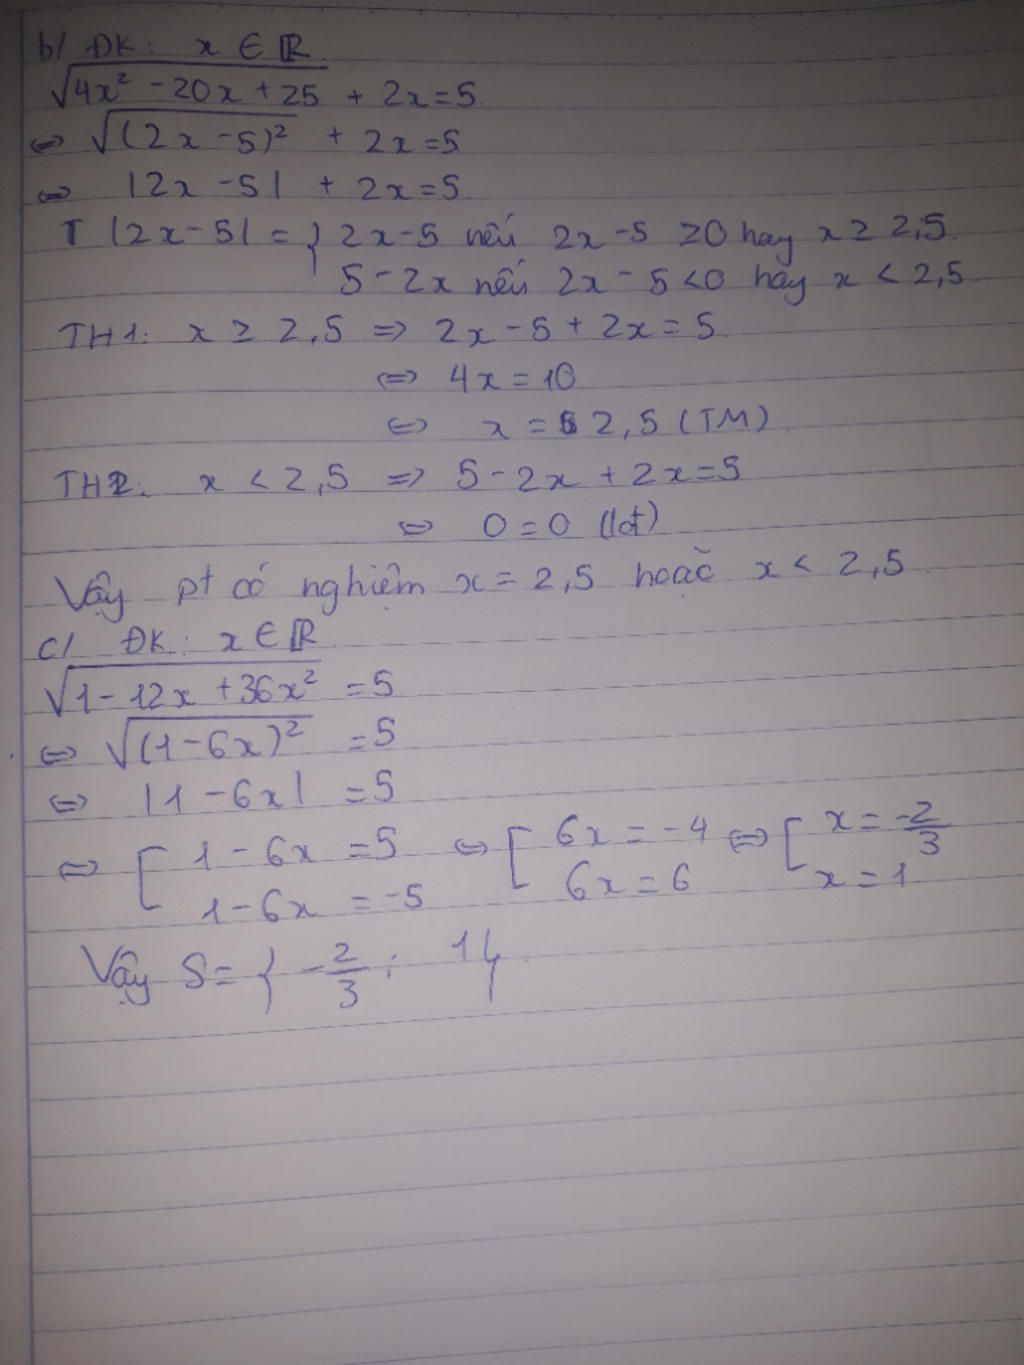 b/ ĐK: x ∈ ℝ
√(4x² - 20x + 25) + 2x = 5
⇔ √((2x - 5)²) + 2x = 5
⇔ |2x - 5| + 2x = 5
T |2x - 5| = { 2x - 5 nếu 2x - 5 ≥ 0 hay x ≥ 2,5.
5 - 2x nếu 2x - 5 < 0 hay x < 2,5.
TH1: x ≥ 2,5 ⇒ 2x - 5 + 2x = 5
⇔ 4x = 10
⇔ x = 2,5 (TM)
TH2: x < 2,5 ⇒ 5 - 2x + 2x = 5
⇔ 0 = 0 (lđ)
Vậy pt có nghiệm x = 2,5 hoặc x < 2,5
c/ ĐK: x ∈ ℝ
√(1 - 12x + 36x²) = 5
⇔ √((1 - 6x)²) = 5
⇔ |1 - 6x| = 5
⇔ [ 1 - 6x = 5 ⇔ [ 6x = -4 ⇔ [ x = -2/3
1 - 6x = -5 6x = 6 x = 1
Vậy S = { -2/3 ; 1 }